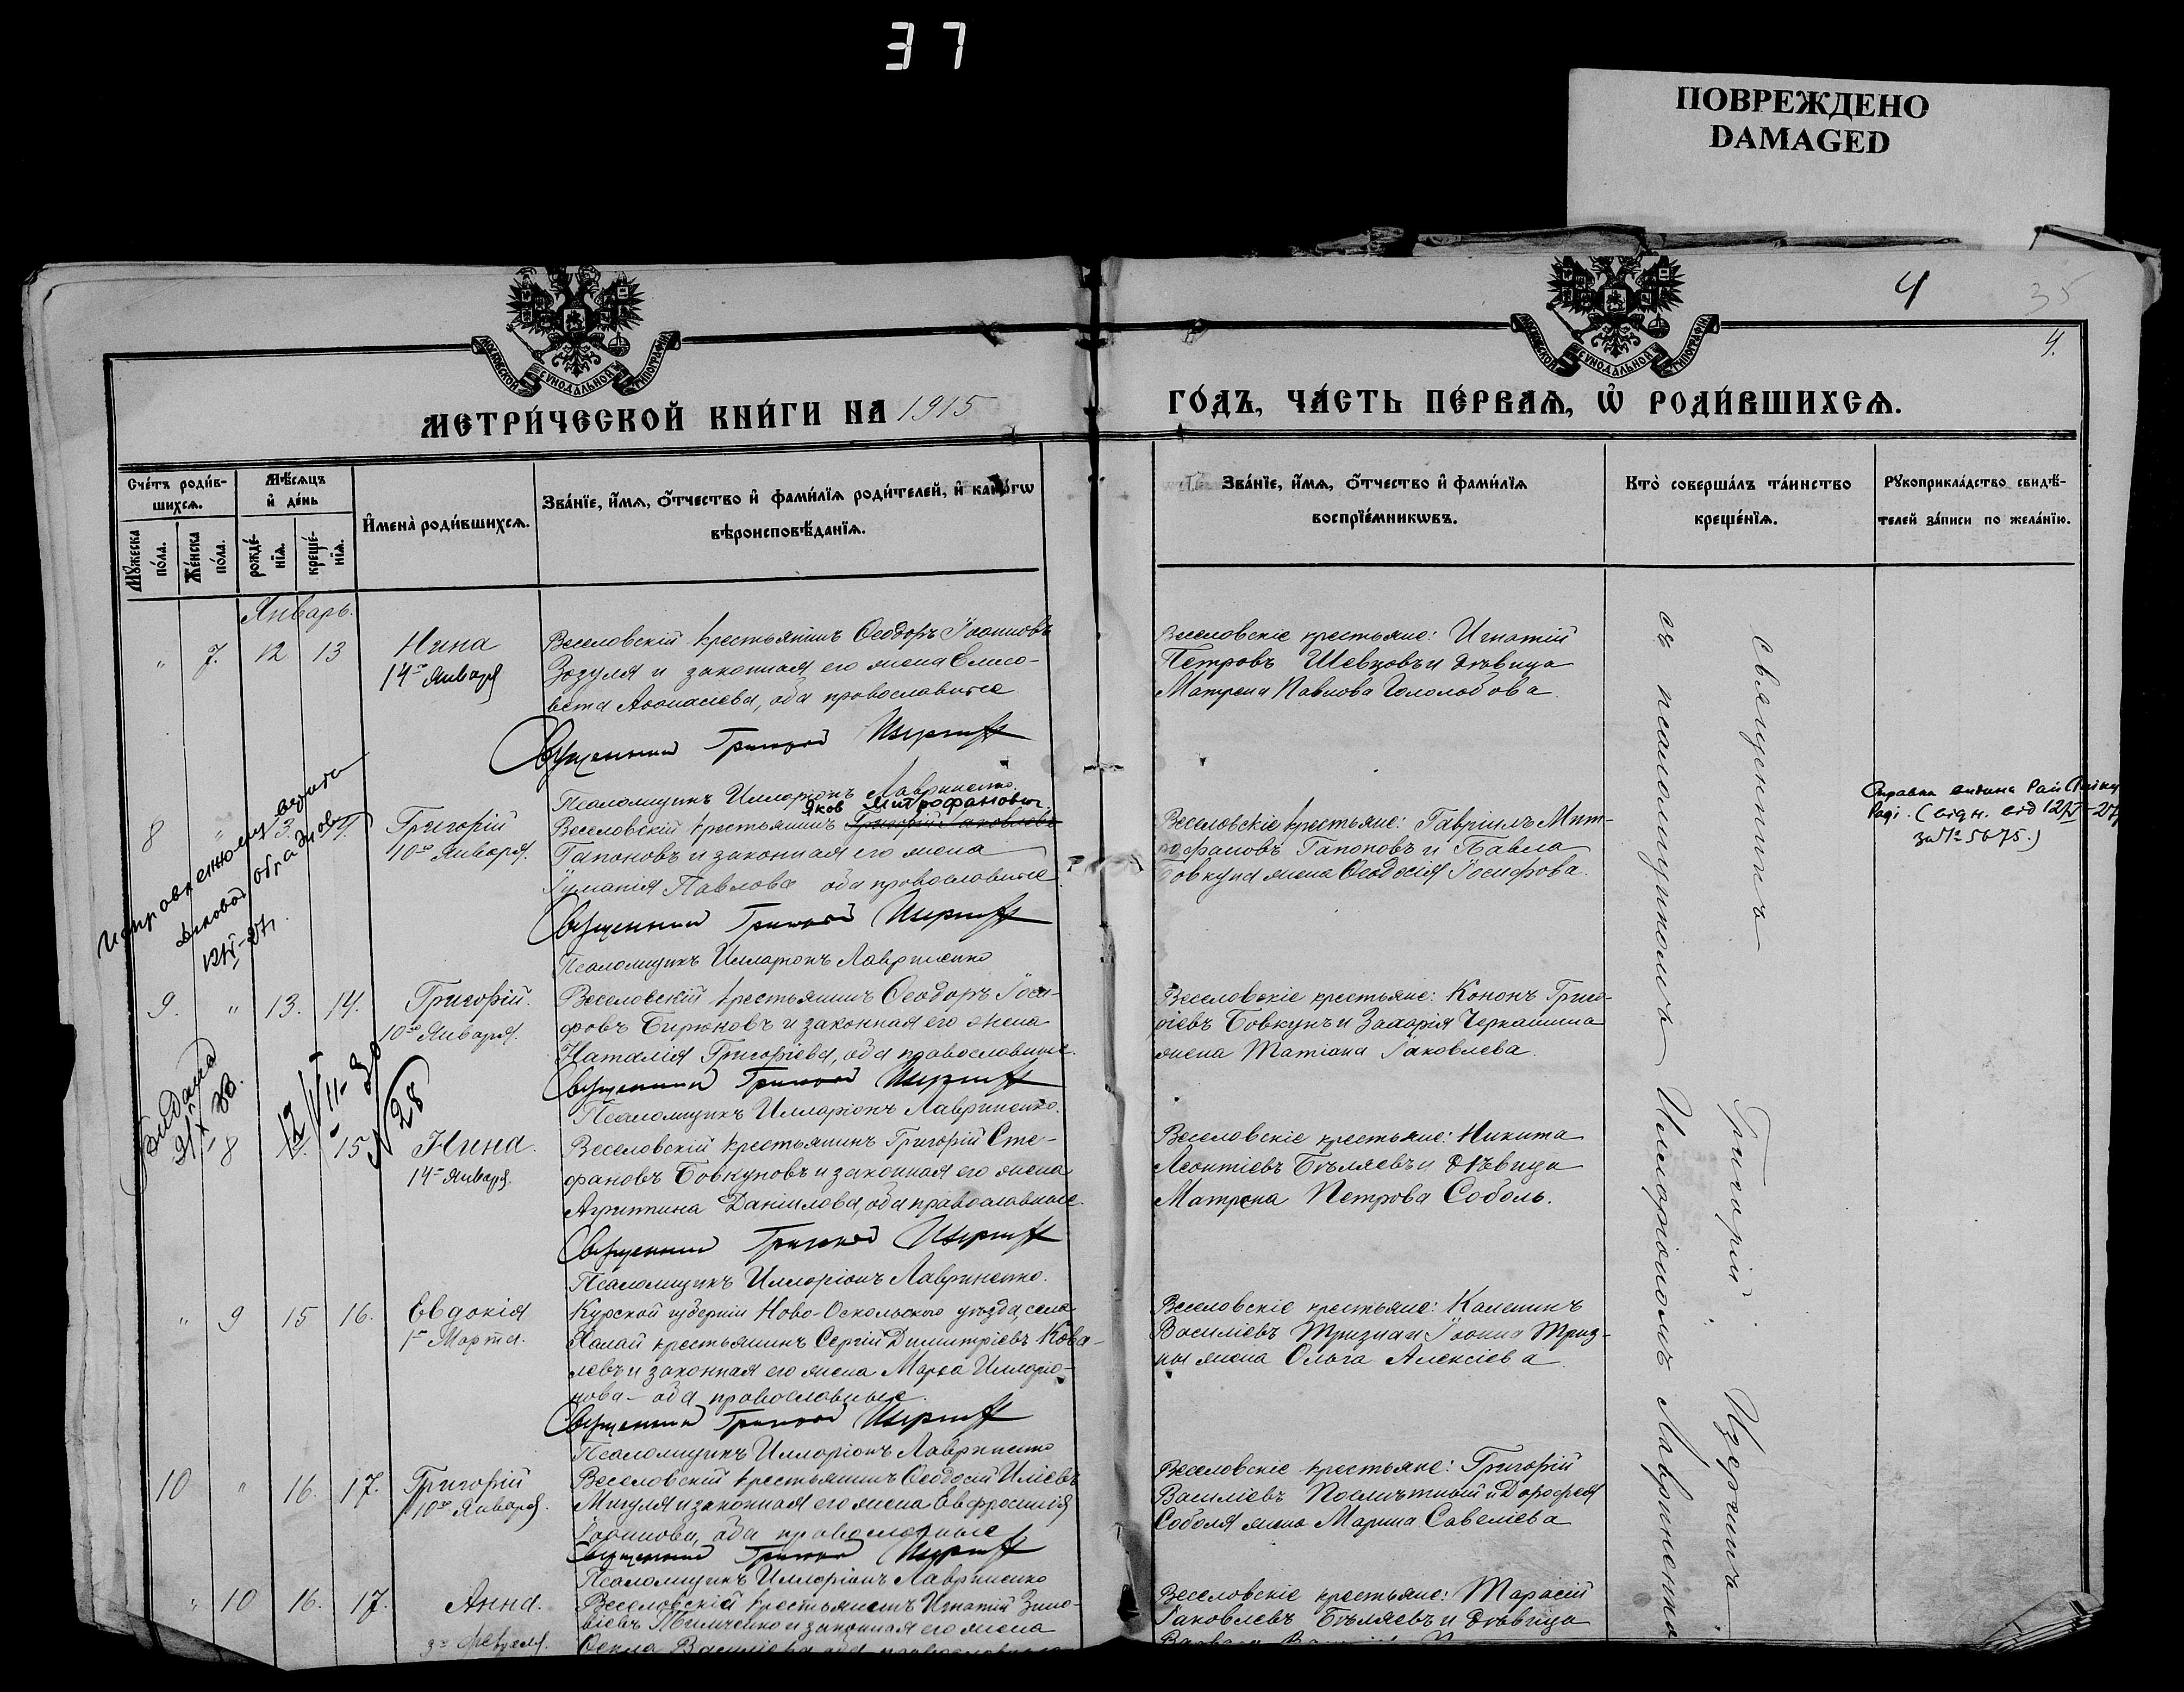 37
ПОВРЕЖДЕНО
DAMAGED
4
35
4.
МОСКОВСКОЙ СУНОДАЛЬНОЙ ТИПОГРАФІИ
МОСКОВСКОЙ СУНОДАЛЬНОЙ ТИПОГРАФІИ
МЕТРИ́ЧЕСКОЙ КНИ́ГИ НА 1915
ГО́ДЪ, ЧА́СТЬ ПЕ́РВАѦ, Ѡ҆ РОДИ́ВШИХСѦ.
Сче́тъ роди́в-
шихсѧ.
Мꙋ́жеска по́ла.
Же́нска по́ла.
Мѣ́сѧцъ
и҆ де́нь
рожде́-
нїѧ.
креще́-
нїѧ.
И҆мена̀ роди́вшихсѧ.
Зва́нїе, и҆́мѧ, ѻ҆́тчество и҆ фами́лїѧ роди́телей, и҆ како́гѡ
вѣроисповѣ́данїѧ.
Зва́нїе, и҆́мѧ, ѻ҆́тчество и҆ фами́лїѧ
воспрїе́мникѡвъ.
Кто̀ соверша́лъ та́инство
креще́нїѧ.
Рꙋкоприкла́дство свидѣ́-
телей за́писи по жела́нїю.
Январь.
" 7. 12 13
Нина
14го Января
Веселовскій крестьянинъ Ѳеодоръ Іоанновъ
Зозуля и законная его жена Елиса-
вета Аѳанасіева, оба православные
Священникъ Григорій
Псаломщикъ Илларіонъ Лавриненко.
Веселовскіе крестьяне: Игнатій
Петровъ Шевцовъ и дѣвица
Матрена Павлова Гололобова.
8 " 13. 14.
Григорій
10го Января.
Яков Митрофанович
Веселовскій крестьянинъ Григорій Іаковлевъ
Гапоновъ и законная его жена
Павлова оба православные
Священникъ Григорій
Псаломщикъ Илларіонъ Лавриненко
Веселовскіе крестьяне: Гавріилъ Мит-
рофановъ Гапоновъ и Павла
Бовкуна жена Ѳеодосія Іосифова.
Справка видана
за № 5675.)
Исправленному верить
9. " 13. 14.
Григорій.
10го Января.
Веселовскій крестьянинъ Ѳеодоръ Іоси-
фовъ Бирюковъ и законная его жена
Наталія Григоріева, оба православные.
Священникъ Григорій
Псаломщикъ Илларіонъ Лавриненко.
Веселовскіе крестьяне: Кононъ Григо-
ріевъ Бовкунъ и Захарія Черкашина
жена Татіана Іаковлева.
Видана
№ 28
" 8 15
Нина.
14го Января.
Веселовскій крестьянинъ Григорій Сте-
фановъ Бовкуновъ и законная его жена
Агриппина Даніилова, оба православные.
Священникъ Григорій
Псаломщикъ Илларіонъ Лавриненко.
Веселовскіе крестьяне: Никита
Леонтіевъ Бѣляевъ и дѣвица
Матрона Петрова Соболь.
" 9 15 16.
Евдокія
1го Марта.
Курской губерніи Ново-Оскольского уѣзда, села
Халани крестьянинъ Сергій Димитріевъ Кова-
левъ и законная его жена Марѳа Илларіо-
нова - оба православные.
Священникъ Григорій
Псаломщикъ Илларіонъ Лавриненко
Веселовскіе крестьяне: Калиникъ
Василіевъ Тризна и Іоанна Триз-
ны жена Ольга Алексіева.
10 " 16. 17.
Григорій
10го Января.
Веселовскій крестьянинъ Ѳеодосій Иліевъ
Мигуля и законная его жена Евфросинія
Іоаннова, оба православные
Священникъ Григорій
Псаломщикъ Илларіонъ Лавриненко
Веселовскіе крестьяне: Григорій
Василіевъ и Дороѳея
Соболя жена Марина Савеліева
" 10 16. 17.
Анна.
3го Февраля.
Веселовскій крестьянинъ Игнатій Зино-
віевъ и законная его жена
Ѳекла Василіева оба православные
Веселовскіе крестьяне: Тарасій
Іаковлевъ Бѣляевъ и дѣвица
Священникъ Григорій
съ псаломщикомъ Илларіономъ Лавриненко